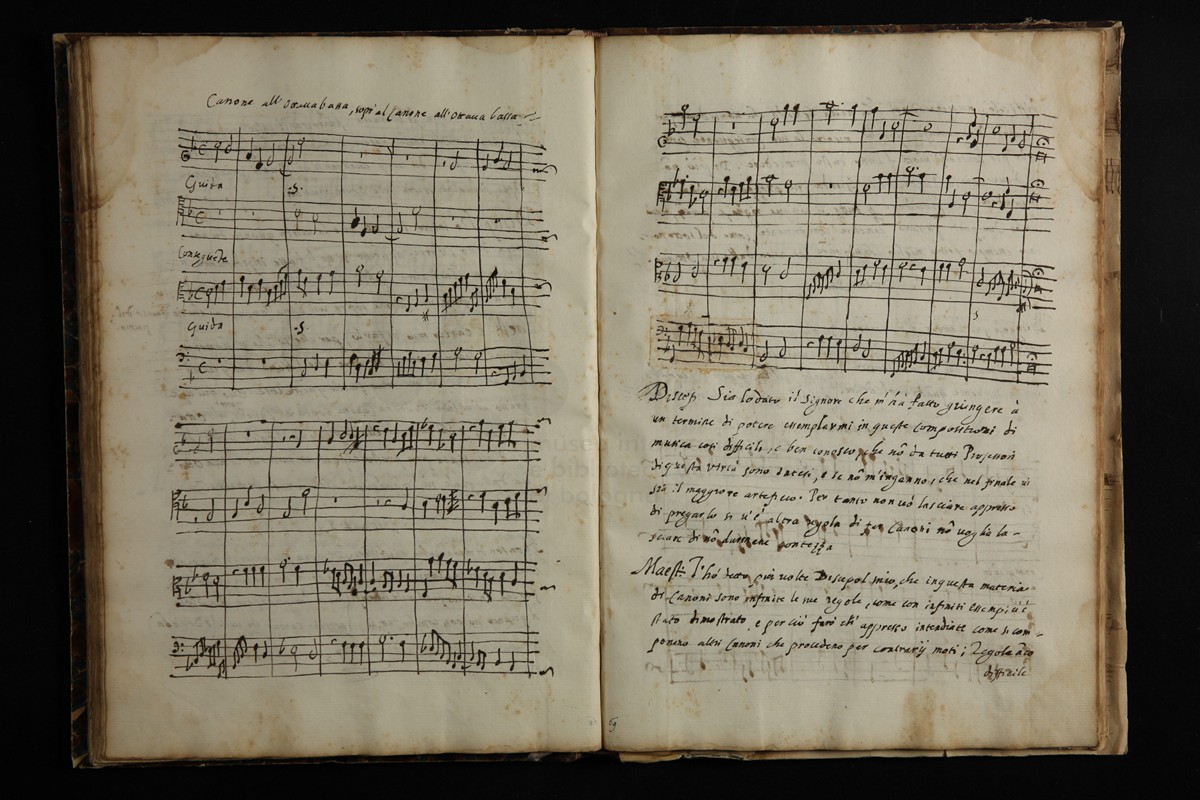 Canone all' Ottava bassa, sopr' al Canone all' Ottava bassa
Guida
Conseguete
Guida
Discep. Sia lodato il Signore che m'hà fatto giungere à
un termine di potere esemplarmi in queste compositioni di
musica così difficili, e ben conosco, che nō da tutti Professori
di questa virtù sono intesi, e se nō m'inganno, che nel finale vi
sia il maggiore artefico. Per tanto non vò lasciare appresso
di pregarlo si v'è altra regola di tai Canoni nō voglia la-
sciare di nō darmene contezza
Maest. T'hò detto più volte Discepol mio, che in questa materia
di Canoni sono infinite le sue regole, come con infiniti esempi v'è
stato dimostrato, e perciò farò ch' appresso intendiate come si com-
poneno altri Canoni che procedeno per contrarij moti; Regola āco
difficile
69